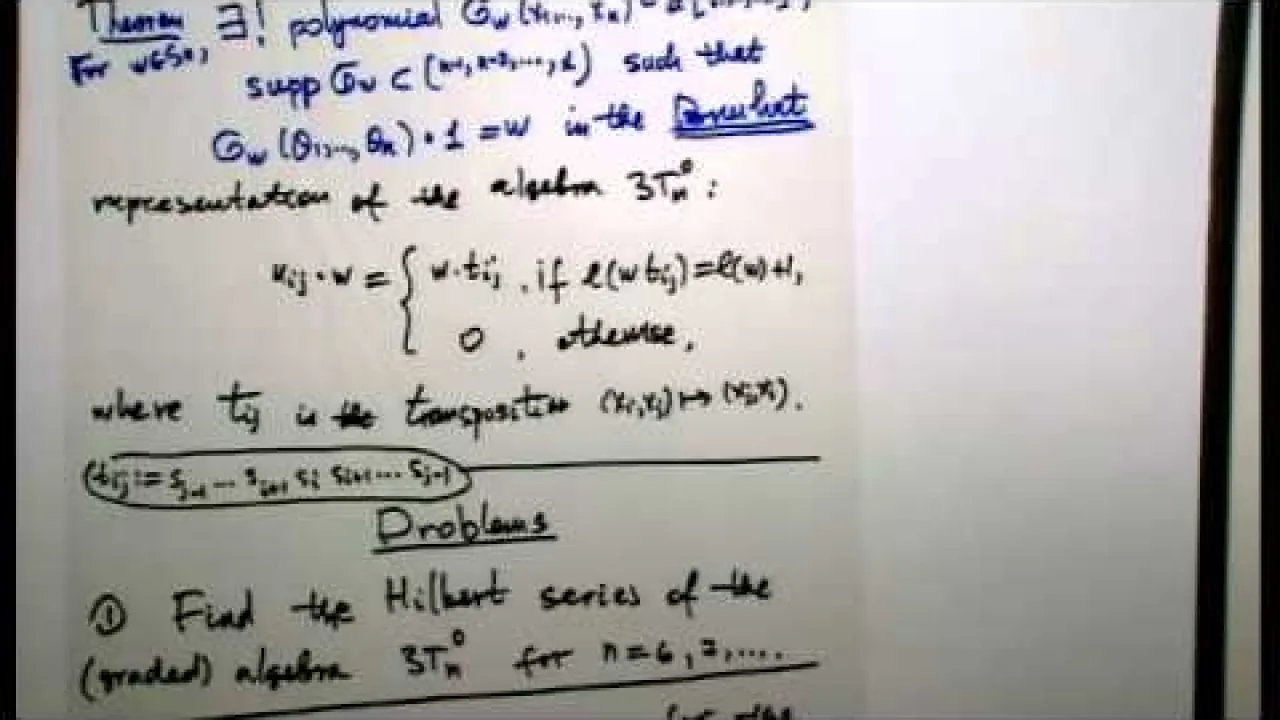 Theorem ∃! polynomial G_w(x_1,..., x_n)
For w∈S_n,
supp G_w ⊂ (n-1, n-2, ..., 1) such that
G_w(θ_1,..., θ_n)·1 = w in the
representation of the algebra 3T_n^0 :
u_ij · w = { w·t_ij , if ℓ(w t_ij) = ℓ(w)+1,
0 , otherwise,
where t_ij is the transposition (x_i, x_j) ↦ (x_j, x_i).
(t_ij := s_{j-1} ... s_{i+1} s_i s_{i+1} ... s_{j-1})
Problems
① Find the Hilbert series of the
(graded) algebra 3T_n^0 for n = 6, 7, ....
for the